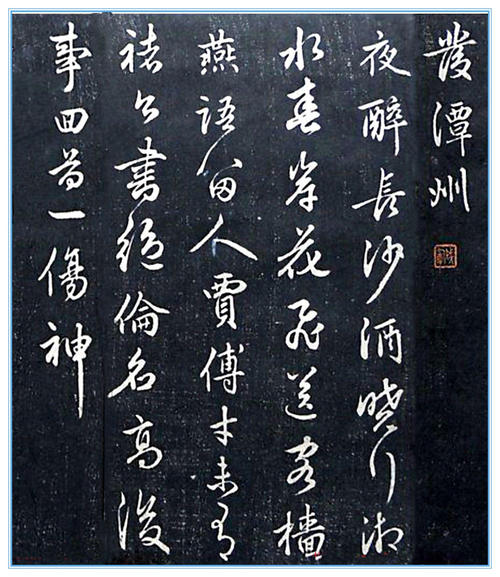 發潭州
夜醉長沙酒曉行湘
水春岸花飛送客檣
燕語留人賈傅才未有
褚公書絕倫名高後
事回首一傷神